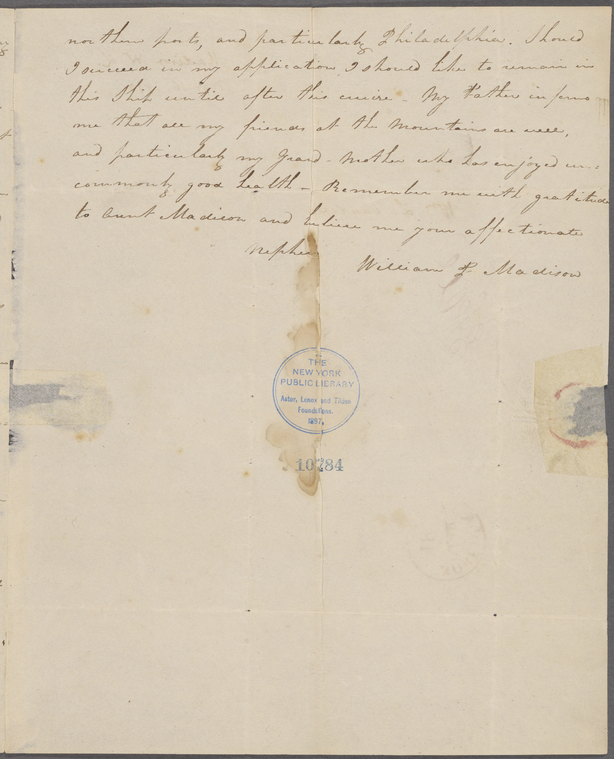 northern ports, and particularly Philadelphia. Should
I succeed in my application I should like to remain in
this Ship until after this cruise - My Father informs
me that all my friends at the Mountains are well,
and particularly my Grand-Mother who has enjoyed un-
commonly good health - Remember me with gratitude
to Aunt Madison and believe me your affectionate
Nephew
William P. Madison
THE
NEW YORK
PUBLIC LIBRARY
Astor, Lenox and Tilden
Foundations.
1897
10784